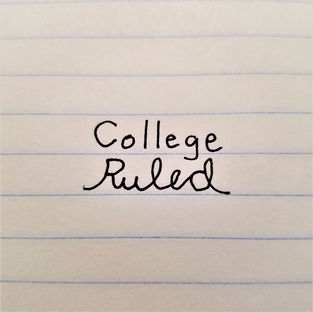 College
Ruled